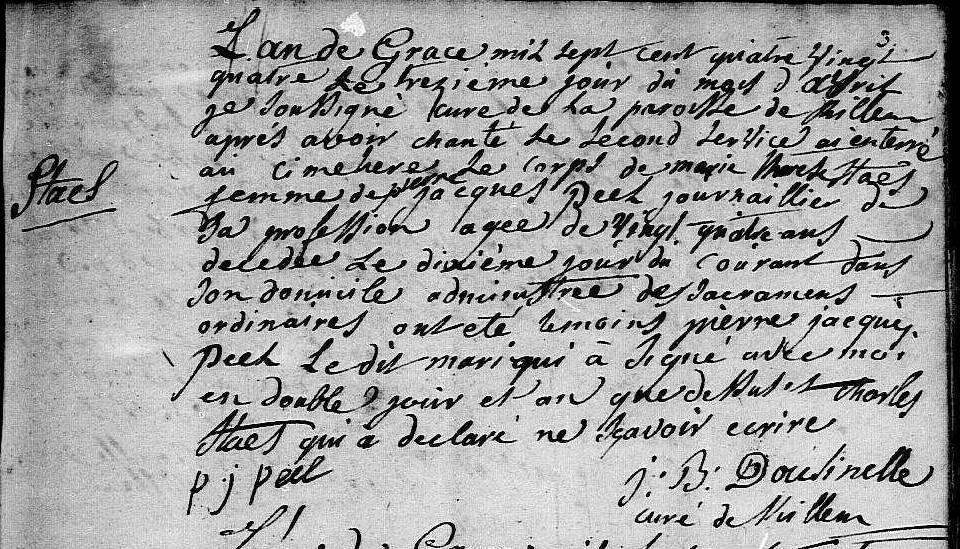 3
L'an de Grace mil sept cent quatre vingt
quatre Le treziéme jour du mois d avril
je soussigné curé de La paroisse de Willem
aprés avoir chanté Le second service ai enterré
au cimetiere Le corps de marie therese Staes
Staes
femme de pierre jacques Peel journaillier de
Sa profession agee de vingt quatre ans
decedée Le dixiéme jour du courant dans
son domicile administree des Sacramens
ordinaires ont eté temoins pierre jacques
Peel Le dit mari qui à signé avec moi
en double jour et an que dessus et charles
Staes qui a declaré ne sçavoir ecrire
p j peel
j: B: Dousinelle
curé de Willem
L'